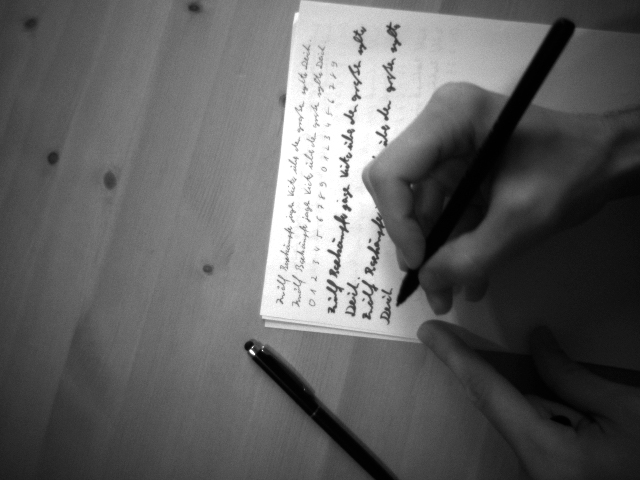 Zwölf Boxkämpfer jagen Viktor über den großen Sylter Deich.
Zwölf Boxkämpfer jagen Viktor über den großen Sylter Deich.
0 1 2 3 4 5 6 7 8 9 0 1 2 3 4 5 6 7 8 9
Zwölf Boxkämpfer jagen Viktor über den großen Sylter
Deich.
Zwölf Boxkämpfer über den großen Sylter
Deich